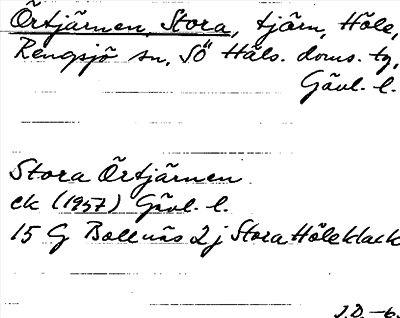 Örtjärnen, Stora, tjärn, Höle,
Rengsjö sn, SÖ Häls. doms. tg,
Gävl. l.
Stora Örtjärnen
ek (1957) Gävl. l.
15 G Bollnäs 2 j Stora Höleklack
J.D. -63